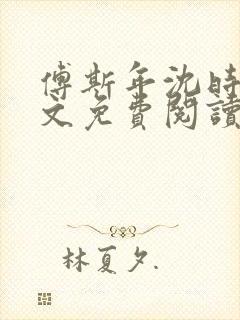 傅斯年沈時
文免費閱讀
林夏夕.